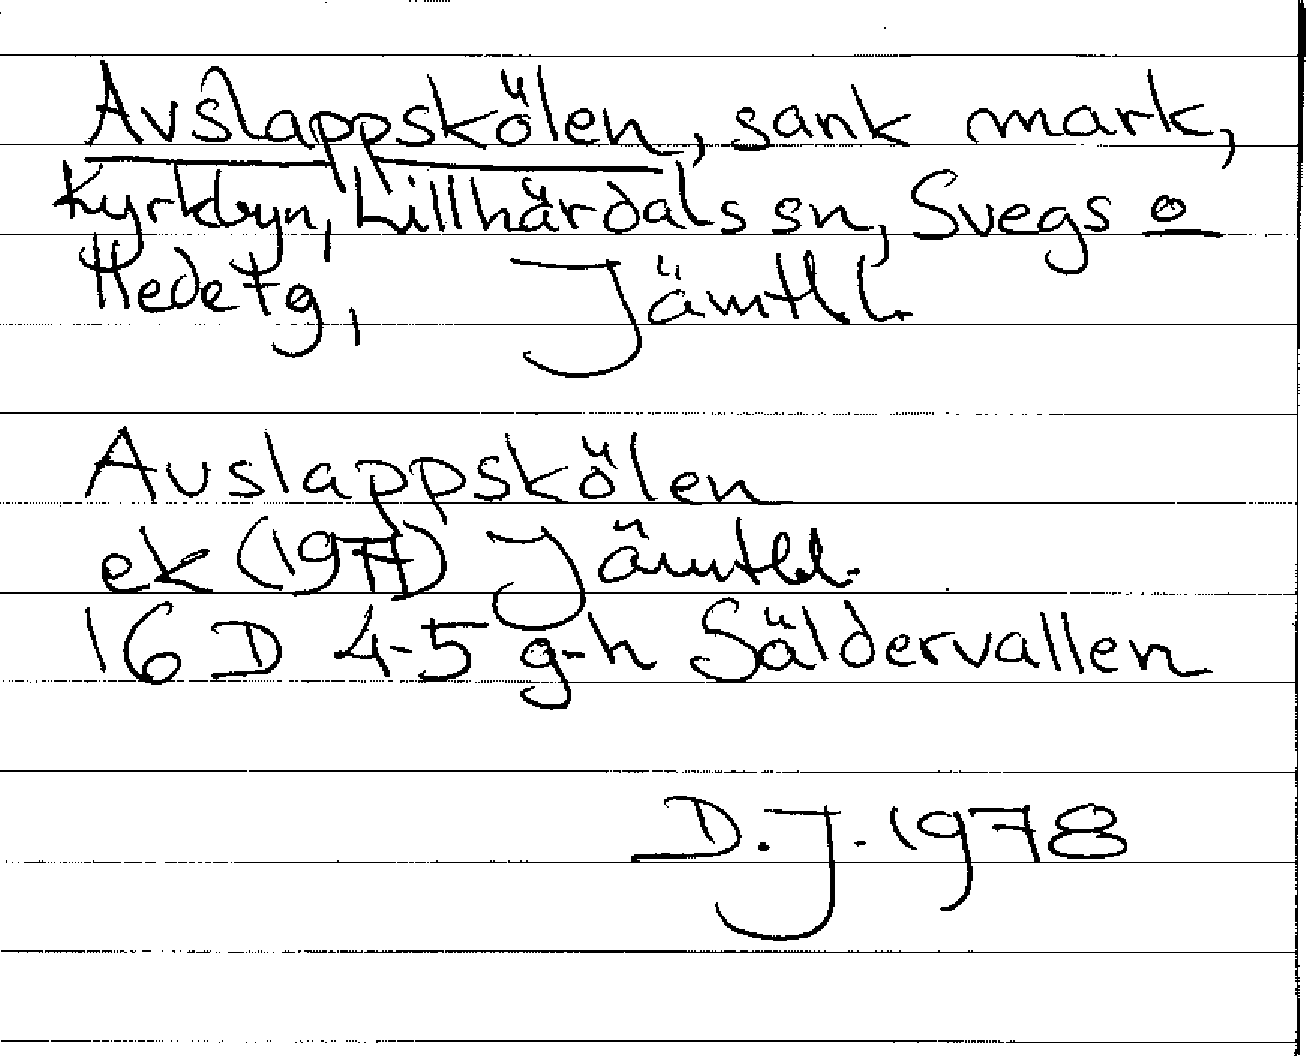 Avslappskölen, sank mark,
Kyrkbyn, Lillhärdals sn, Svegs o
Hede tg, Jämtl l.
Avslappskölen
ek (1977) Jämtl l.
16 D 4-5 g-h Säldervallen
D.J. 1978